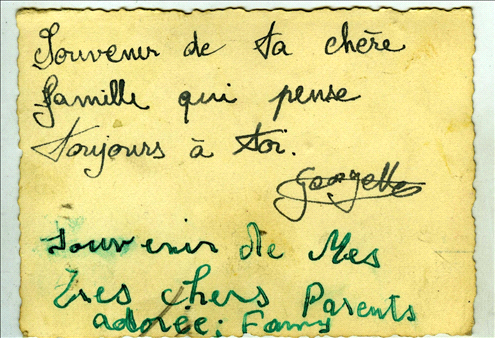 Souvenir de ta chère
famille qui pense
toujours à toi.
Georgette
Souvenir de Mes
Tres chers Parents
adorée; Fanny